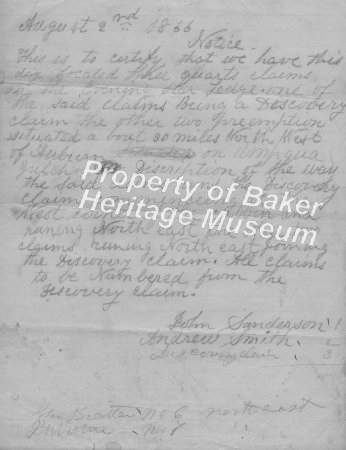 August 2nd 1866
Notice
This is to certify that we have this
day located three quarts claims
on the Evening Star Ledge one of
the said claims Being a Discovery
claim the other two Preemption
situated a bout 30 miles North West
of Auburn on Umpqua
gulch Discription of the way
the said Discovery
claim
West
runing North east
claims runing North east joining
the Discovery claim. All claims
to be Numbered from the
Discovery claim.
John Sanderson 1
Andrew Smith 2
Discovery claim 3
No 6 north east
Property of Baker
Heritage Museum